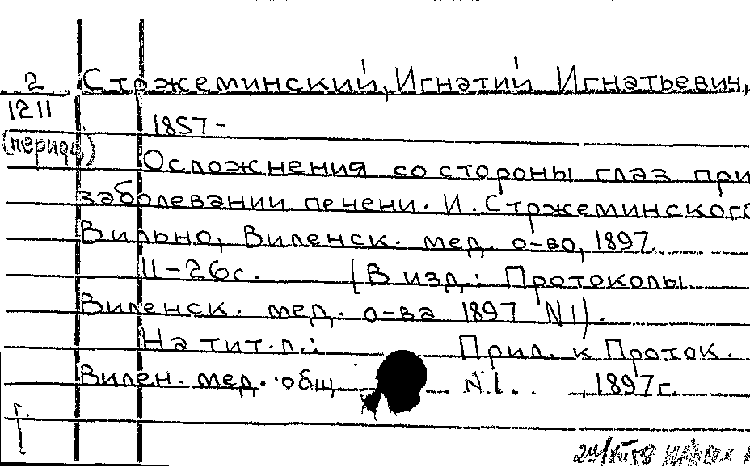 2 Стржеминский, Игнатий Игнатьевич,
1211
1857-
(период)
Осложнения со стороны глаз при
заболевании печени. И. Стржеминского
Вильно, Виленск. мед. о-во, 1897.
11-26с. (В изд.: Протоколы
Виленск. мед. о-ва 1897 N1).
На тит.л.: Прил. к Проток.
Вилен. мед. общ. N.1. . , 1897г.